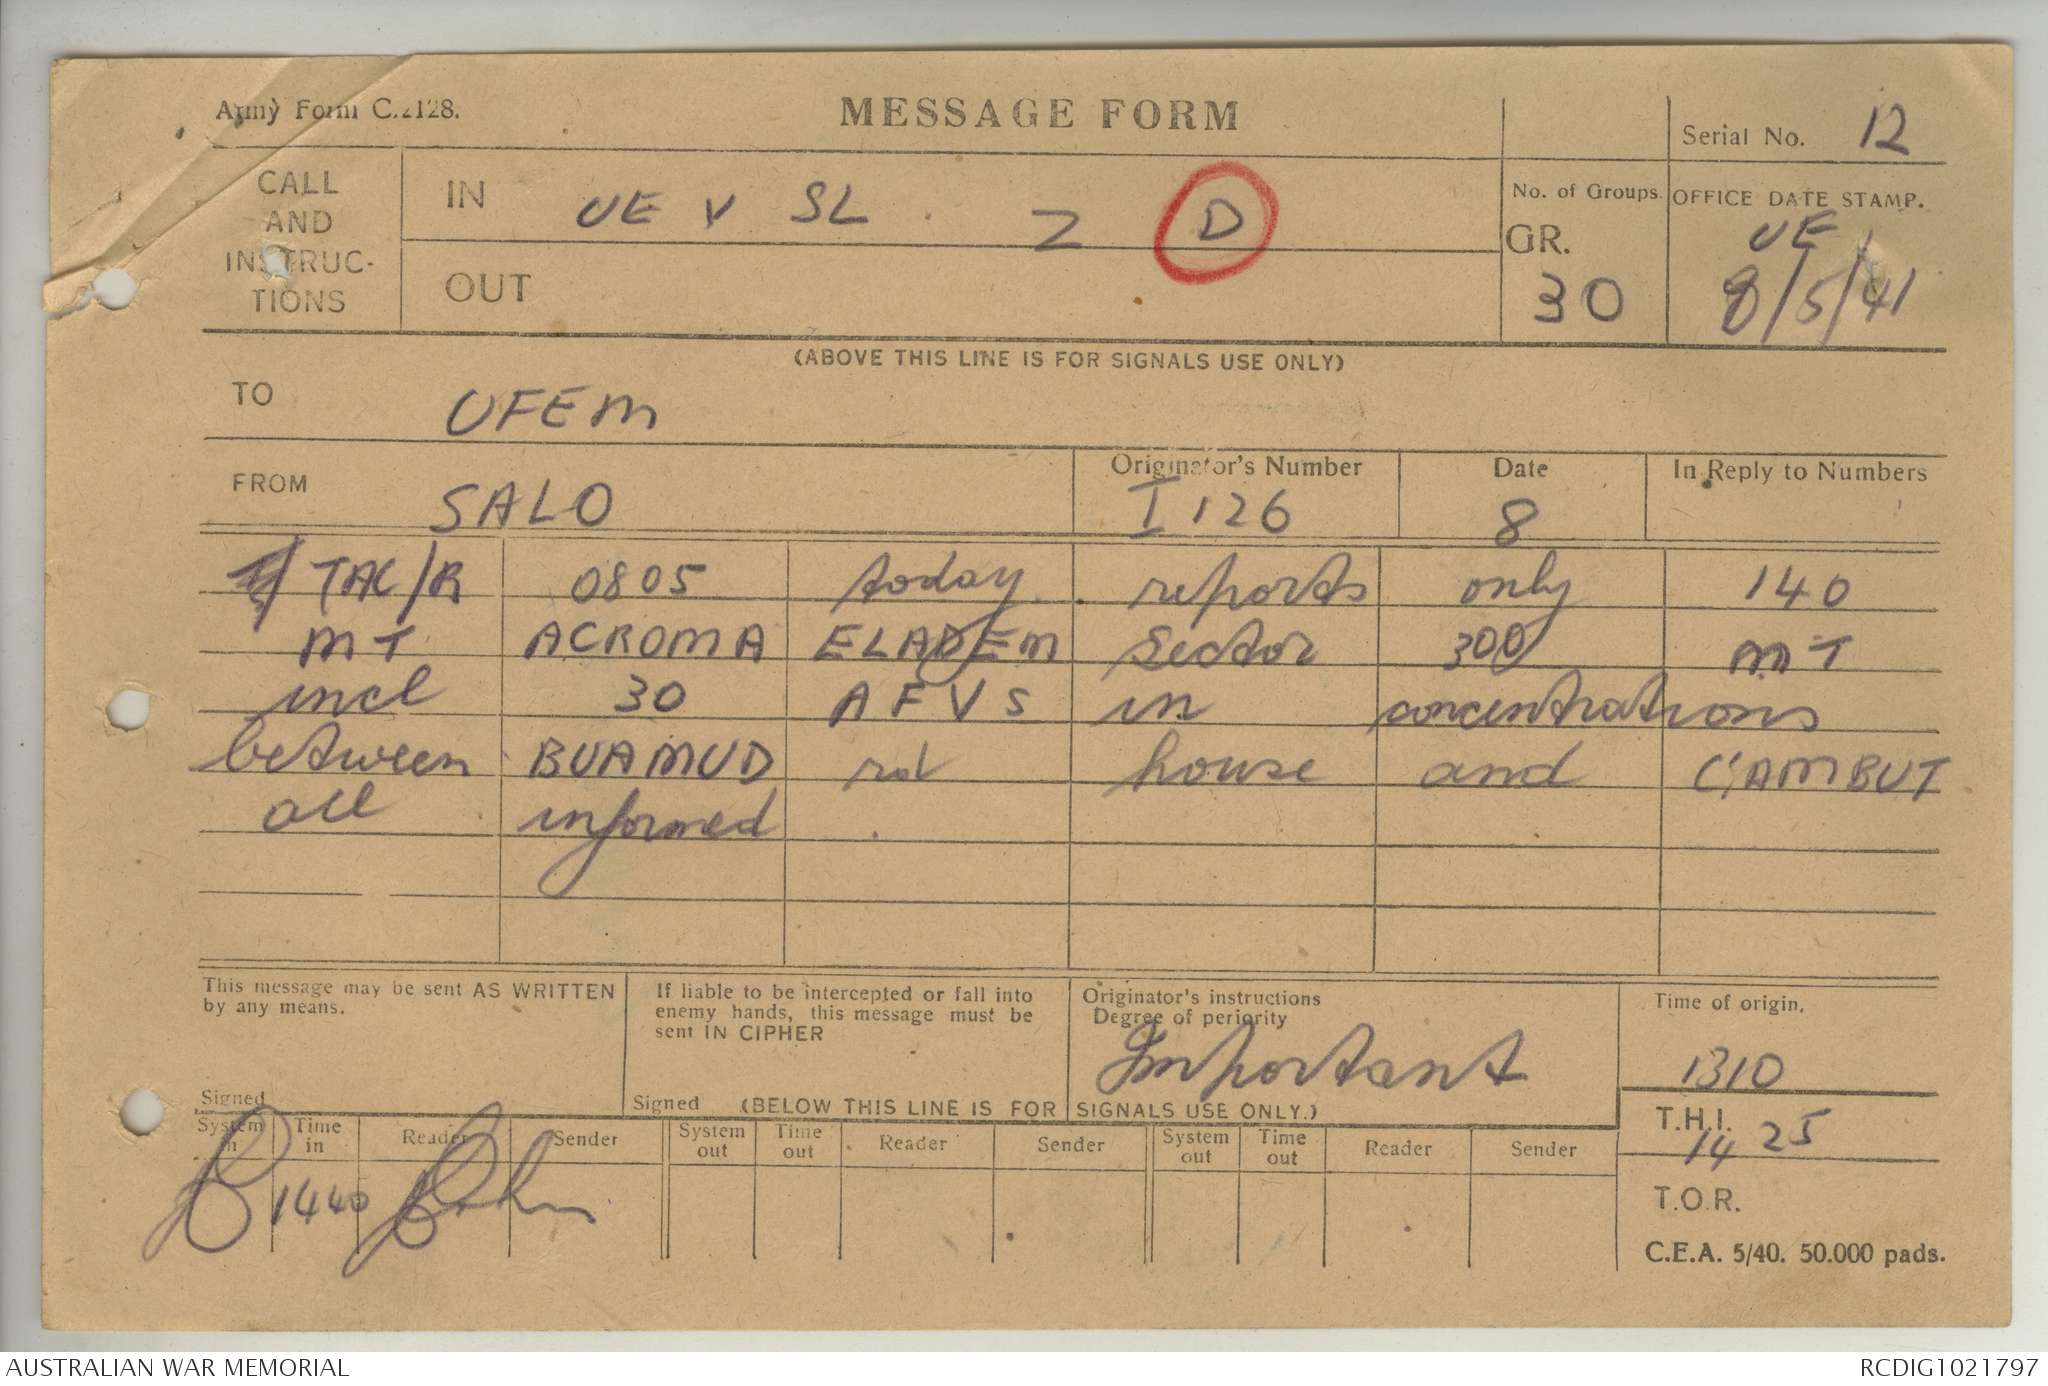 Army Form C.2128.
MESSAGE FORM
Serial No. 12
CALL
AND
INSTRUC-
TIONS
IN UE V SL Z D
OUT
No. of Groups.
GR.
30
OFFICE DATE STAMP.
UE
8/5/41
(ABOVE THIS LINE IS FOR SIGNALS USE ONLY)
TO UFEM
FROM SALO
Originator's Number
I 126
Date
8
In Reply to Numbers
TAC/R 0805 today reports only 140
MT ACROMA ELADEM Sector 300 MT
incl 30 AFVS in concentrations
between BUAMUD rd house and GAMBUT
all informed
This message may be sent AS WRITTEN
by any means.
Signed
If liable to be intercepted or fall into
enemy hands, this message must be
sent IN CIPHER
Signed
Originator's instructions
Degree of periority
Important
Time of origin.
1310
(BELOW THIS LINE IS FOR SIGNALS USE ONLY.)
T.H.I.
1425
T.O.R.
System in Time in Reader Sender System out Time out Reader Sender System out Time out Reader Sender
1440
C.E.A. 5/40. 50.000 pads.
AUSTRALIAN WAR MEMORIAL
RCDIG1021797